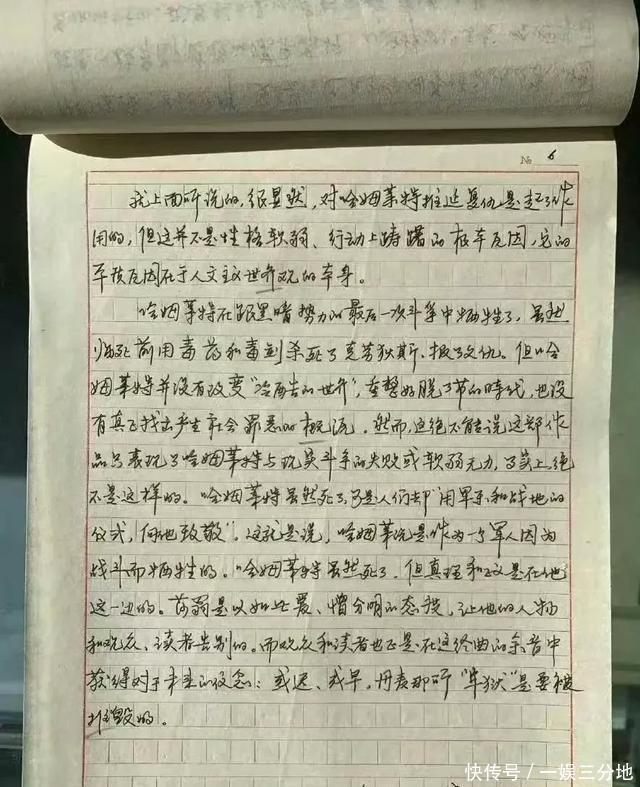 № 6
我上面所说的,很显然,对哈姆莱特推迟复仇是起了作
用的,但这并不是性格软弱、行动上踌躇的根本原因,它的
本质原因在于人文主义世界观的本身。
哈姆莱特在跟黑暗势力的最后一次斗争中牺牲了,虽然
临死前用毒药和毒剑杀死了克劳狄斯、报了父仇。但哈
姆莱特并没有改变“冷酷的世界”,重整好脱了节的时代,也没
有真正找出产生社会罪恶的根源。然而,这绝不能说这部作
品只表现了哈姆莱特与现实斗争的失败或软弱无力,事实上,绝
不是这样的。哈姆莱特虽然死了,可是人们却“用军乐和战地的
仪式,向他致敬”。这就是说,哈姆莱特是作为一个军人因为
战斗而牺牲的。哈姆莱特虽然死了,但真理和正义是在他
这一边的。莎翁是以如此爱、憎分明的态度,让他的人物
和观众、读者告别的。而观众和读者也正是在这终曲的余音中
获得对于未来的信念:或迟、或早,丹麦那所“牢狱”是要被
摧毁的。
快传号/一娱三分地